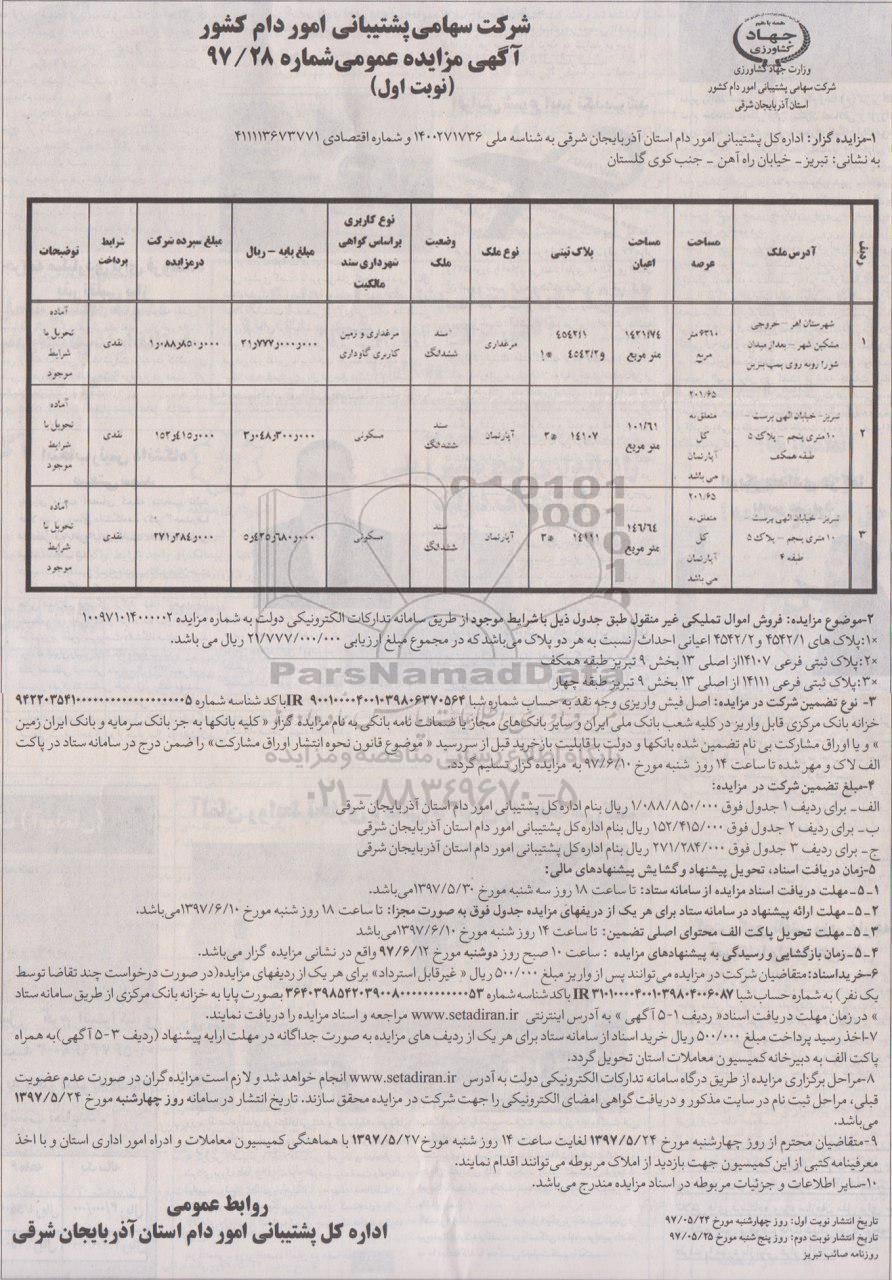 شرکت سهامی پشتیبانی امور دام کشور
آگهی مزایده عمومی شماره ۹۷/۲۸
(نوبت اول)
همه با هم
جهاد
کشاورزی
وزارت جهاد کشاورزی
شرکت سهامی پشتیبانی امور دام کشور
استان آذربایجان شرقی
۱-مزایده گزار: اداره کل پشتیبانی امور دام استان آذربایجان شرقی به شناسه ملی ۱۴۰۰۲۷۱۷۳۶ و شماره اقتصادی ۴۱۱۱۱۳۶۷۳۷۷۱
به نشانی: تبریز - خیابان راه آهن - جنب کوی گلستان
ردیف | آدرس ملک | مساحت عرصه | مساحت اعیان | پلاک ثبتی | نوع ملک | وضعیت ملک | نوع کاربری براساس گواهی شهرداری سند مالکیت | مبلغ پایه - ریال | مبلغ سپرده شرکت در مزایده | شرایط پرداخت | توضیحات
۱ | شهرستان اهر - خروجی مشکین شهر - بعد از میدان شورا روبه روی پمپ بنزین | ۶۳۱۰ متر مربع | ۱۴۲۱/۷۴ متر مربع | ۴۵۴۲/۱ و ۴۵۴۲/۲ ×۱ | مرغداری | سند ششدانگ | مرغداری و زمین کاربری گاوداری | ۲۱و۷۷۷و۰۰۰و۰۰۰ | ۱و۰۸۸و۸۵۰و۰۰۰ | نقدی | آماده تحویل با شرایط موجود
۲ | تبریز- خیابان الهی پرست - ۱۰ متری پنجم - پلاک ۵ طبقه همکف | ۲۰۱/۶۵ متعلق به کل آپارتمان می باشد | ۱۰۱/۶۱ متر مربع | ۱۴۱۰۷ ×۲ | آپارتمان | سند ششدانگ | مسکونی | ۳و۰۴۸و۳۰۰و۰۰۰ | ۱۵۲و۴۱۵و۰۰۰ | نقدی | آماده تحویل با شرایط موجود
۳ | تبریز- خیابان الهی پرست - ۱۰ متری پنجم - پلاک ۵ طبقه ۴ | ۲۰۱/۶۵ متعلق به کل آپارتمان می باشد | ۱۴۶/۶۴ متر مربع | ۱۴۱۱۱ ×۳ | آپارتمان | سند ششدانگ | مسکونی | ۵و۴۲۵و۶۸۰و۰۰۰ | ۲۷۱و۲۸۴و۰۰۰ | نقدی | آماده تحویل با شرایط موجود
۲-موضوع مزایده: فروش اموال تملیکی غیر منقول طبق جدول ذیل با شرایط موجود از طریق سامانه تدارکات الکترونیکی دولت به شماره مزایده ۱۰۰۹۷۱۰۱۴۰۰۰۰۰۲
×۱: پلاک های ۴۵۴۲/۱ و ۴۵۴۲/۲ اعیانی احداث نسبت به هر دو پلاک می باشد که در مجموع مبلغ ارزیابی ۲۱/۷۷۷/۰۰۰/۰۰۰ ریال می باشد.
×۲: پلاک ثبتی فرعی ۱۴۱۰۷ از اصلی ۱۳ بخش ۹ تبریز طبقه همکف
×۳: پلاک ثبتی فرعی ۱۴۱۱۱ از اصلی ۱۳ بخش ۹ تبریز طبقه چهار
۳- نوع تضمین شرکت در مزایده: اصل فیش واریزی وجه نقد به حساب شماره شبا IR ۹۰۰۱۰۰۰۰۴۰۰۱۰۳۹۸۰۶۳۷۰۵۶۴ با کد شناسه شماره
خزانه بانک مرکزی قابل واریز در کلیه شعب بانک ملی ایران و سایر بانک های مجاز یا ضمانت نامه بانکی به نام مزایده گزار « کلیه بانکها به جز بانک سرمایه و بانک ایران زمین
» و یا اوراق مشارکت بی نام تضمین شده بانکها و دولت با قابلیت بازخرید قبل از سررسید « موضوع قانون نحوه انتشار اوراق مشارکت» را ضمن درج در سامانه ستاد در پاکت
الف لاک و مهر شده تا ساعت ۱۴ روز شنبه مورخ ۹۷/۶/۱۰ به مزایده گزار تسلیم گردد.
۴-مبلغ تضمین شرکت در مزایده:
الف- برای ردیف ۱ جدول فوق ۱/۰۸۸/۸۵۰/۰۰۰ ریال بنام اداره کل پشتیبانی امور دام استان آذربایجان شرقی
ب- برای ردیف ۲ جدول فوق ۱۵۲/۴۱۵/۰۰۰ ریال بنام اداره کل پشتیبانی امور دام استان آذربایجان شرقی
ج- برای ردیف ۳ جدول فوق ۲۷۱/۲۸۴/۰۰۰ ریال بنام اداره کل پشتیبانی امور دام استان آذربایجان شرقی
۵-زمان دریافت اسناد، تحویل پیشنهاد و گشایش پیشنهادهای مالی:
۵-۱- مهلت دریافت اسناد مزایده از سامانه ستاد: تا ساعت ۱۸ روز سه شنبه مورخ ۱۳۹۷/۵/۳۰ می باشد.
۵-۲- مهلت ارائه پیشنهاد در سامانه ستاد برای هر یک از دریفهای مزایده جدول فوق به صورت مجزا: تا ساعت ۱۸ روز شنبه مورخ ۱۳۹۷/۶/۱۰ می باشد.
۵-۳- مهلت تحویل پاکت الف محتوای اصلی تضمین: تا ساعت ۱۴ روز شنبه مورخ ۱۳۹۷/۶/۱۰ می باشد
۵-۴- زمان بازگشایی و رسیدگی به پیشنهادهای مزایده : ساعت ۱۰ صبح روز دوشنبه مورخ ۹۷/۶/۱۲ واقع در نشانی مزایده گزار می باشد.
۶-خرید اسناد: متقاضیان شرکت در مزایده می توانند پس از واریز مبلغ ۵۰۰/۰۰۰ ریال « غیرقابل استرداد» برای هر یک از ردیفهای مزایده(در صورت درخواست چند تقاضا توسط
یک نفر) به شماره حساب شبا IR ۳۱۰۱۰۰۰۰۴۰۰۱۰۳۹۸۰۴۰۰۶۰۸۷ با کد شناسه شماره بصورت پایا به خزانه بانک مرکزی از طریق سامانه ستاد
» در زمان مهلت دریافت اسناد« ردیف ۱-۵ آگهی » به آدرس اینترنتی www.setadiran.ir مراجعه و اسناد مزایده را دریافت نمایند.
۷-اخذ رسید پرداخت مبلغ ۵۰۰/۰۰۰ ریال خرید اسناد از سامانه ستاد برای هر یک از ردیف های مزایده به صورت جداگانه در مهلت ارایه پیشنهاد (ردیف ۳-۵ آگهی)به همراه
پاکت الف به دبیرخانه کمیسیون معاملات استان تحویل گردد.
۸-مراحل برگزاری مزایده از طریق درگاه سامانه تدارکات الکترونیکی دولت به آدرس www.setadiran.ir انجام خواهد شد و لازم است مزایده گران در صورت عدم عضویت
قبلی، مراحل ثبت نام در سایت مذکور و دریافت گواهی امضای الکترونیکی را جهت شرکت در مزایده محقق سازند. تاریخ انتشار در سامانه روز چهارشنبه مورخ ۱۳۹۷/۵/۲۴
می باشد.
۹-متقاضیان محترم از روز چهارشنبه مورخ ۱۳۹۷/۵/۲۴ لغایت ساعت ۱۴ روز شنبه مورخ ۱۳۹۷/۵/۲۷ با هماهنگی کمیسیون معاملات و ادراه امور اداری استان و با اخذ
معرفینامه کتبی از این کمیسیون جهت بازدید از املاک مربوطه می توانند اقدام نمایند.
۱۰-سایر اطلاعات و جزئیات مربوطه در اسناد مزایده مندرج می باشد.
روابط عمومی
اداره کل پشتیبانی امور دام استان آذربایجان شرقی
تاریخ انتشار نوبت اول: روز چهارشنبه مورخ ۹۷/۰۵/۲۴
تاریخ انتشار نوبت دوم: روز پنج شنبه مورخ ۹۷/۰۵/۲۵
روزنامه صائب تبریز
ParsNamadData
۰۲۱-۸۸۳۴۹۶۷۰-۵